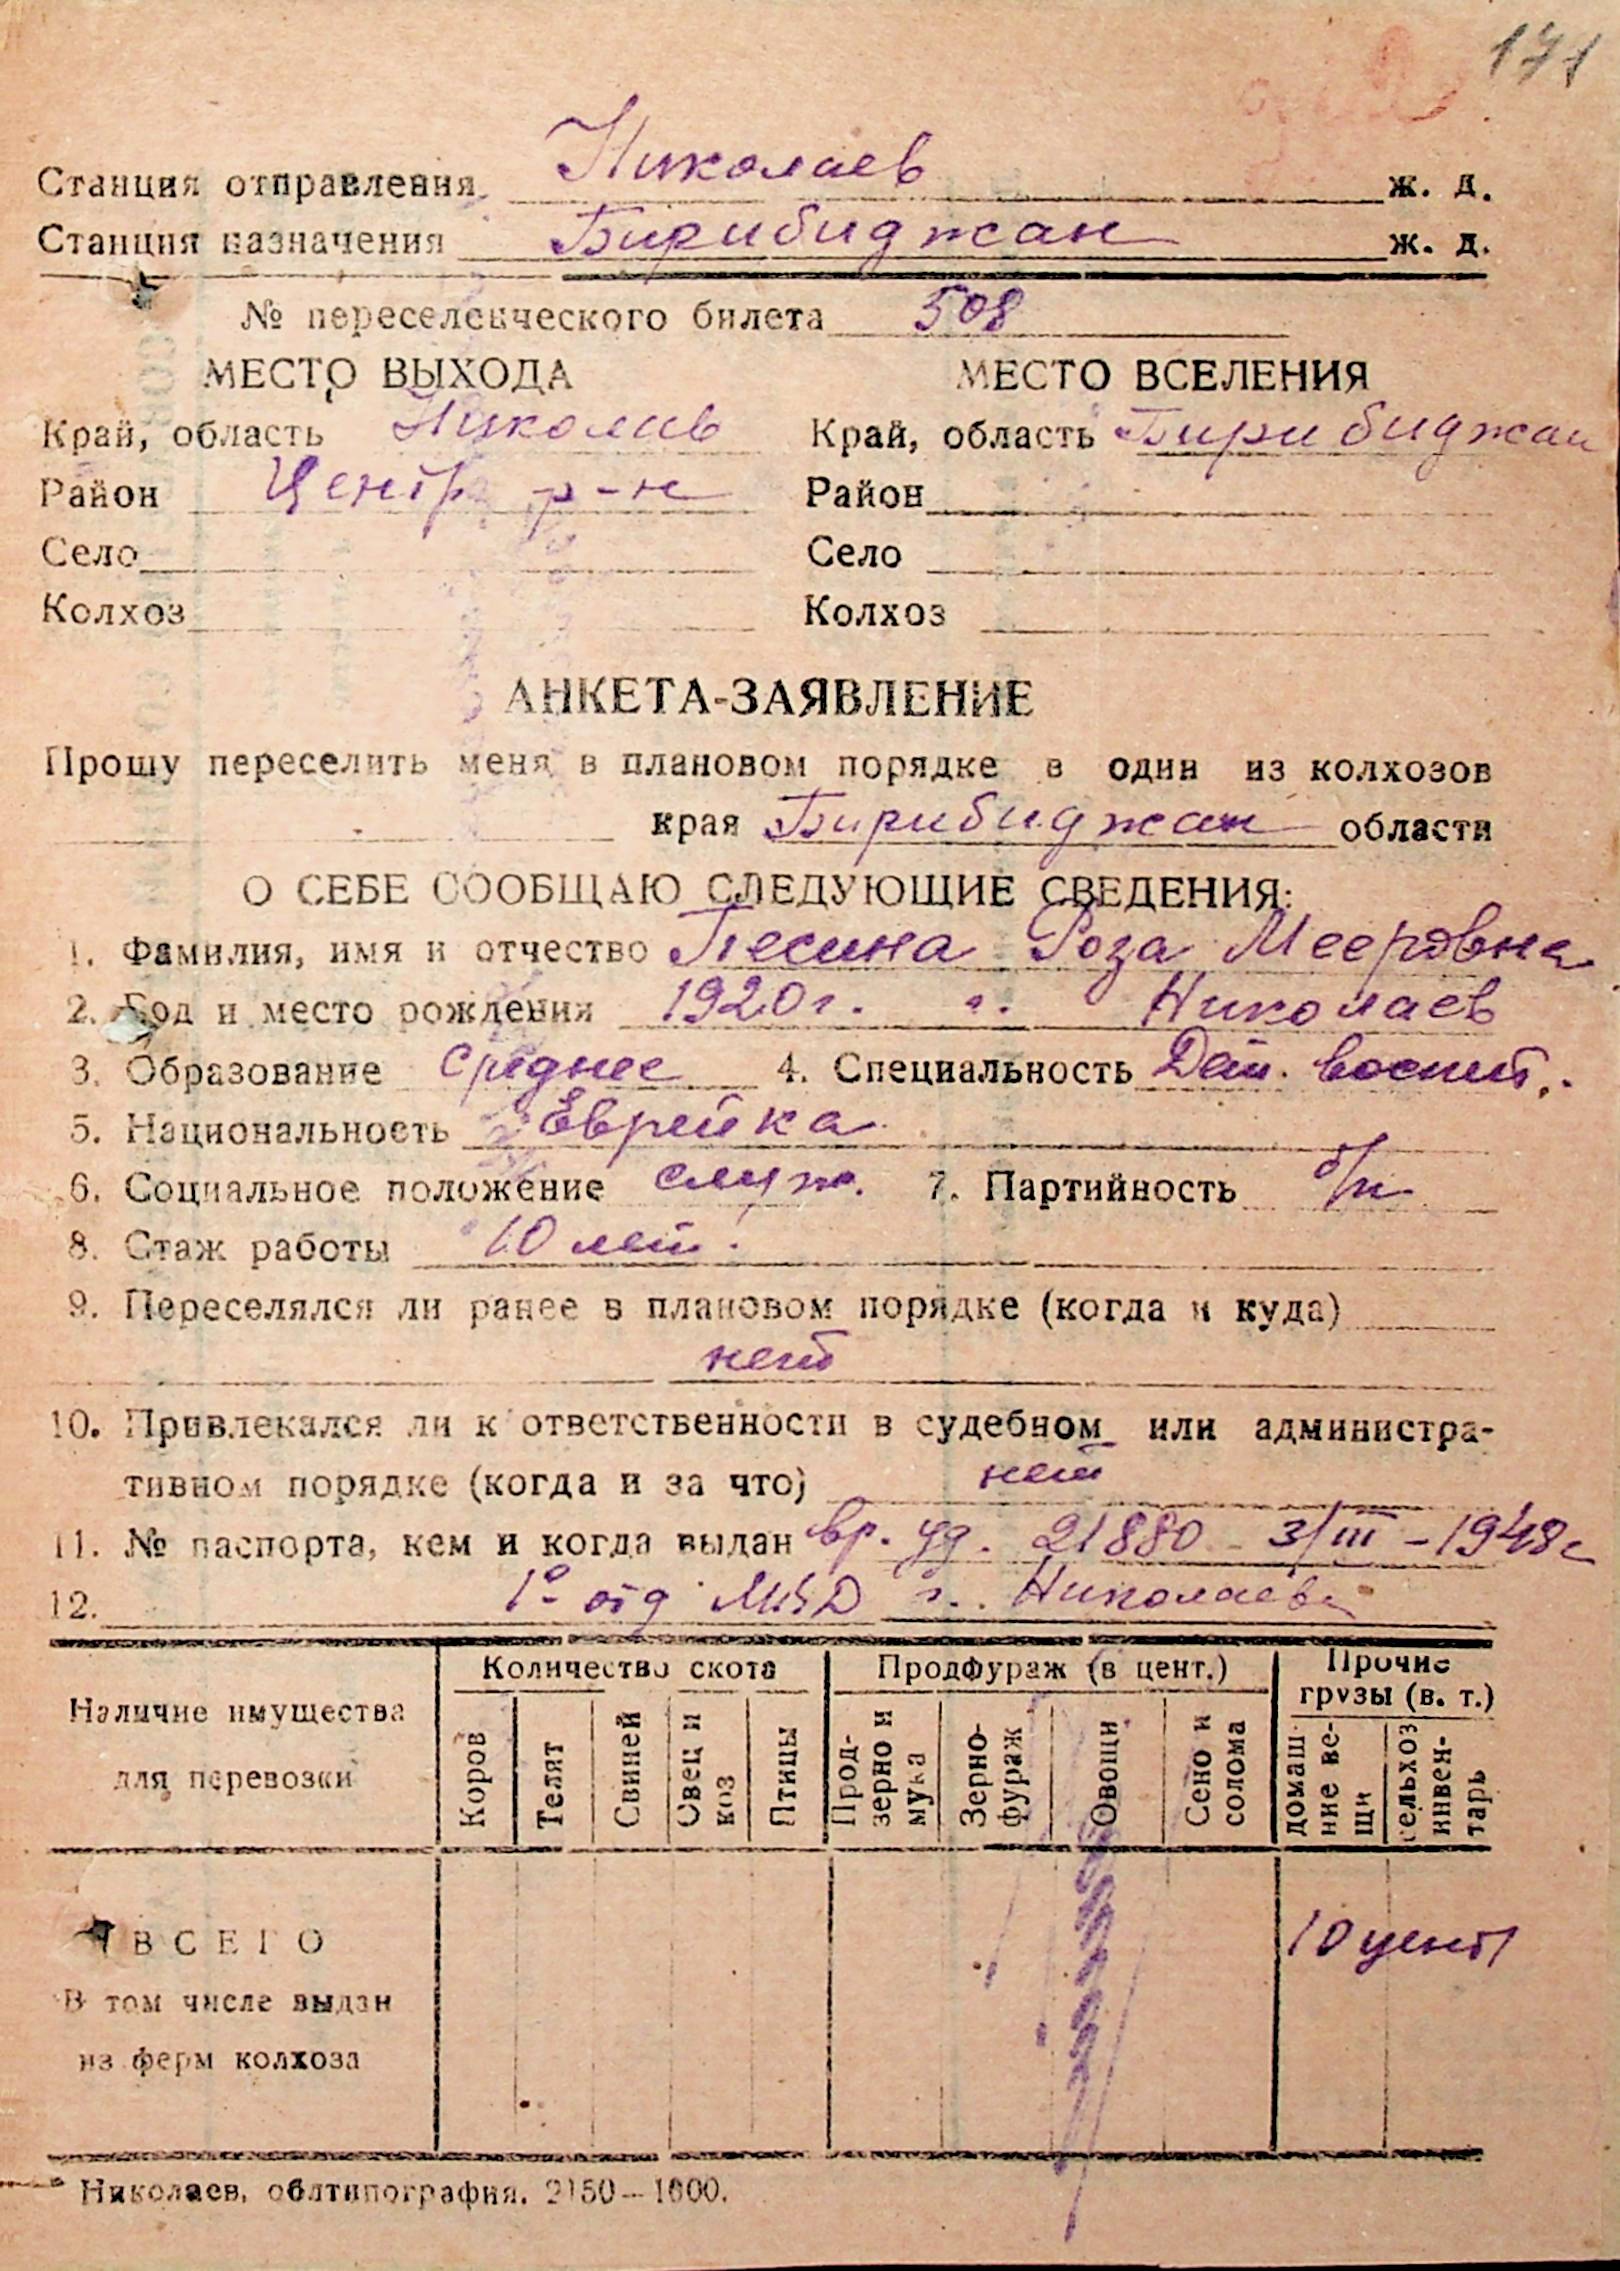 171
Станция отправления Николаев ж. д.
Станция назначения Бирибиджан ж. д.
№ переселенческого билета 508
МЕСТО ВЫХОДА МЕСТО ВСЕЛЕНИЯ
Край, область Николаев Край, область Бирибиджан
Район Центр р-н Район
Село Село
Колхоз Колхоз
АНКЕТА-ЗАЯВЛЕНИЕ
Прошу переселить меня в плановом порядке в один из колхозов
края Бирибиджан области
О СЕБЕ СООБЩАЮ СЛЕДУЮЩИЕ СВЕДЕНИЯ:
1. Фамилия, имя и отчество Песина Роза Мееровна
2. Год и место рождения 1920 г. г. Николаев
3. Образование среднее 4. Специальность Дет. воспит.
5. Национальность Еврейка
6. Социальное положение служ. 7. Партийность б/п
8. Стаж работы 10 лет.
9. Переселялся ли ранее в плановом порядке (когда и куда)
нет
10. Привлекался ли к ответственности в судебном или администра-
тивном порядке (когда и за что) нет
11. № паспорта, кем и когда выдан вр. уд. 21880 3/III - 1948 г
12. 1о отд МВД г. Николаева
Наличие имущества для перевозки
Количество скота
Продфураж (в цент.)
Прочие грузы (в. т.)
Коров
Телят
Свиней
Овец и коз
Птицы
Прод-зерно и мука
Зерно-фураж
Овощи
Сено и солома
домаш-ние ве-щи
сельхоз инвен-тарь
ВСЕГО 10 цент
В том числе выдан
из ферм колхоза
Николаев, облтипография. 2150—1000.